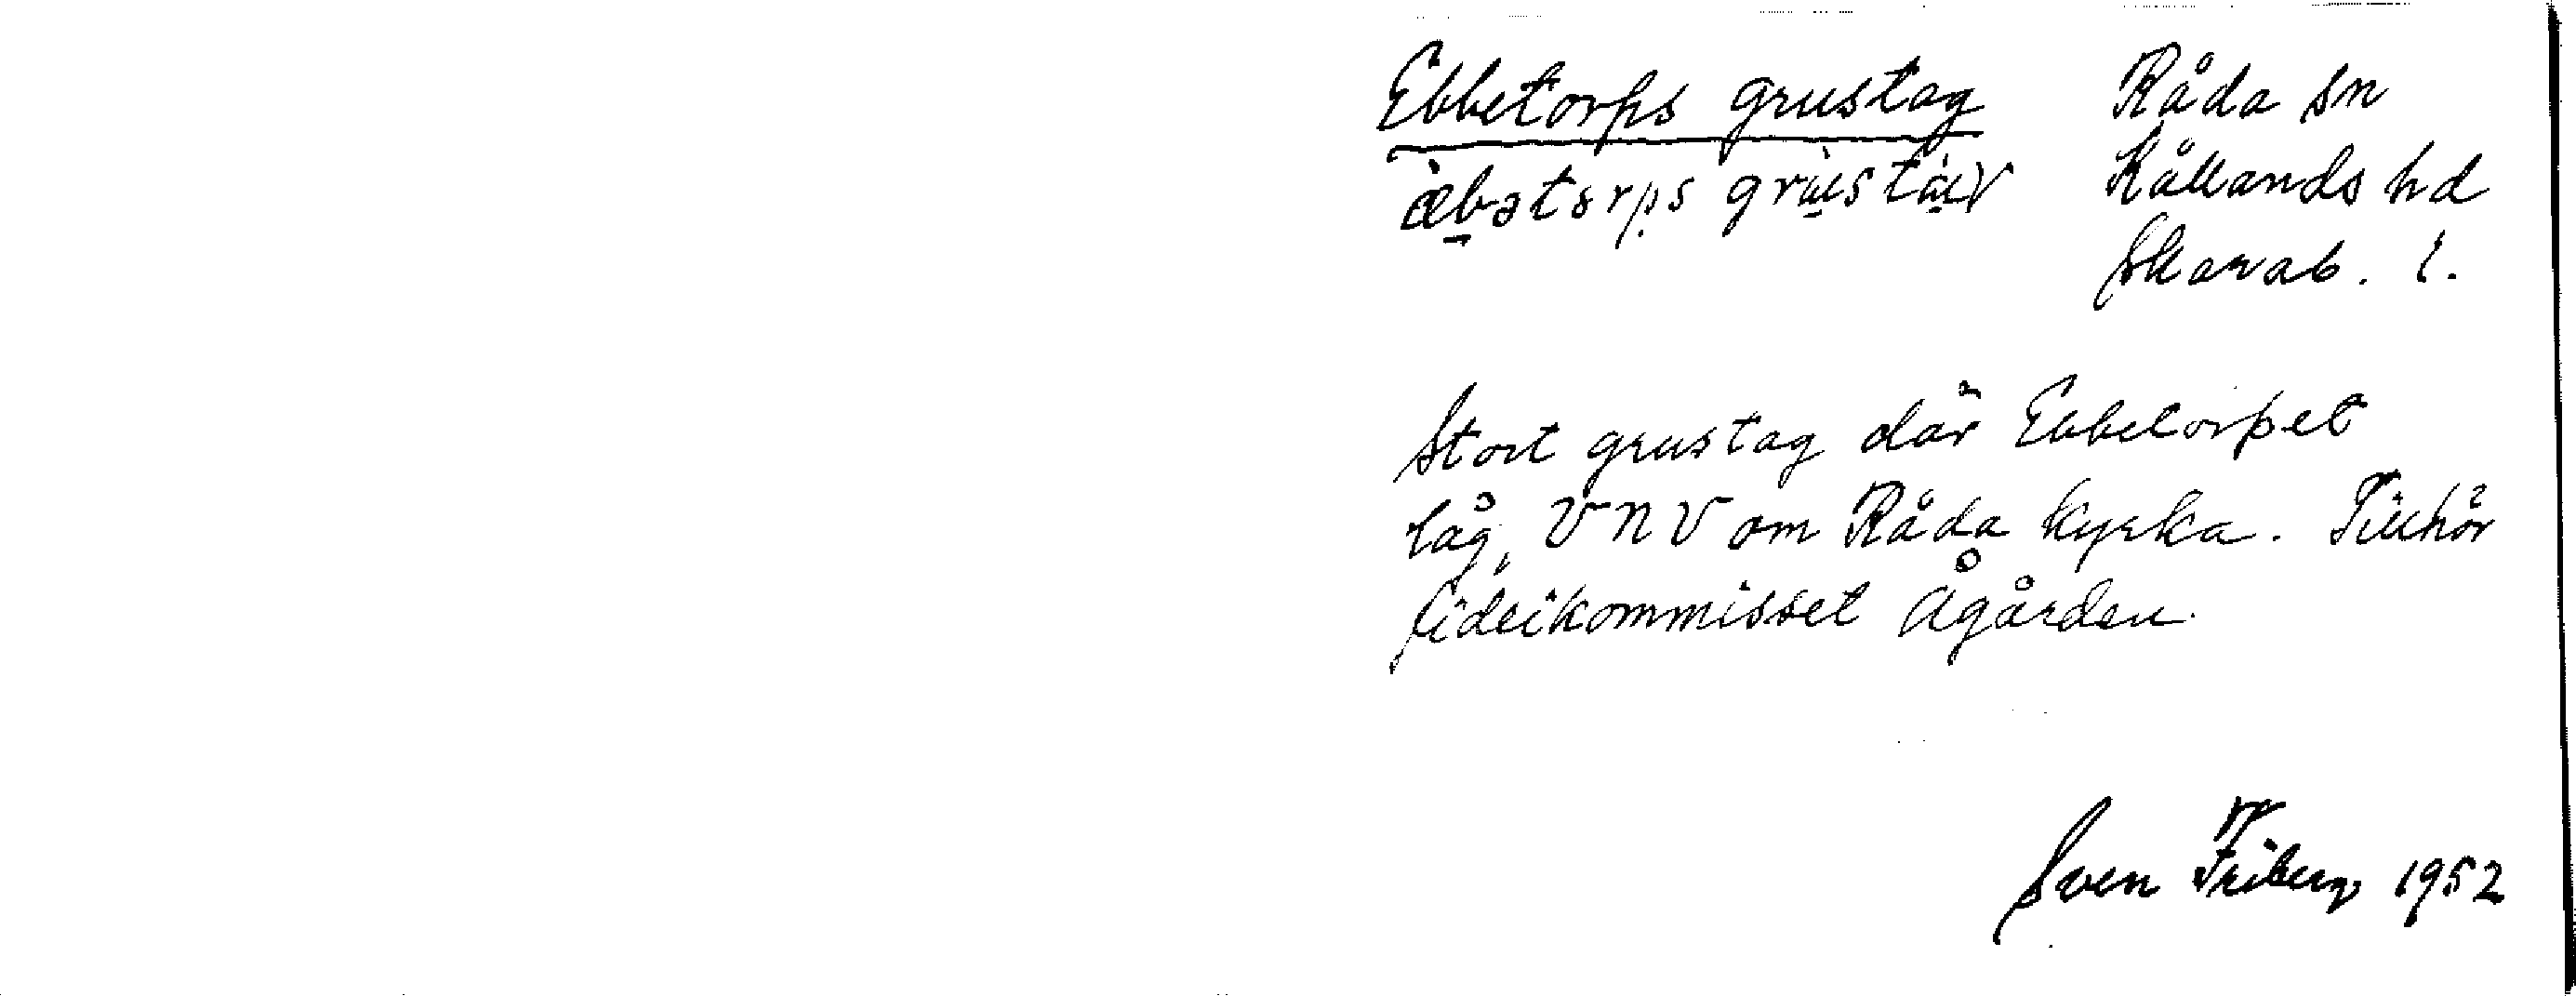 Ebbetorps grustag
Råda sn
Kållands hd
Skarab. l.
Stort grustag där Ebbetorpet
låg, VNV om Råda kyrka. Tillhör
fideikommisset Ågården.
Sven Friberg 1952